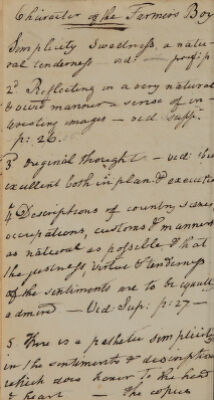 Character of the Farmers Boy
Simplicity Sweetness, a natu-
ral tenderness — vid: — pref: p
2d Reflecting in a very natural
manner a sense of in-
teresting images — vid: Supp:
p: 26.
3d original thought — vid:
excellent both in plan & execution
4 Descriptions of country scenes
occupations, customs & manners
as natural as possible, & that
the justness, virtue & tenderness
of the sentiments are to be equally
admired — Vid: Sup: p: 27 —
5. There is a pathetic simplicity
in the sentiments & descriptions
which does honor to the head
& heart — The copies